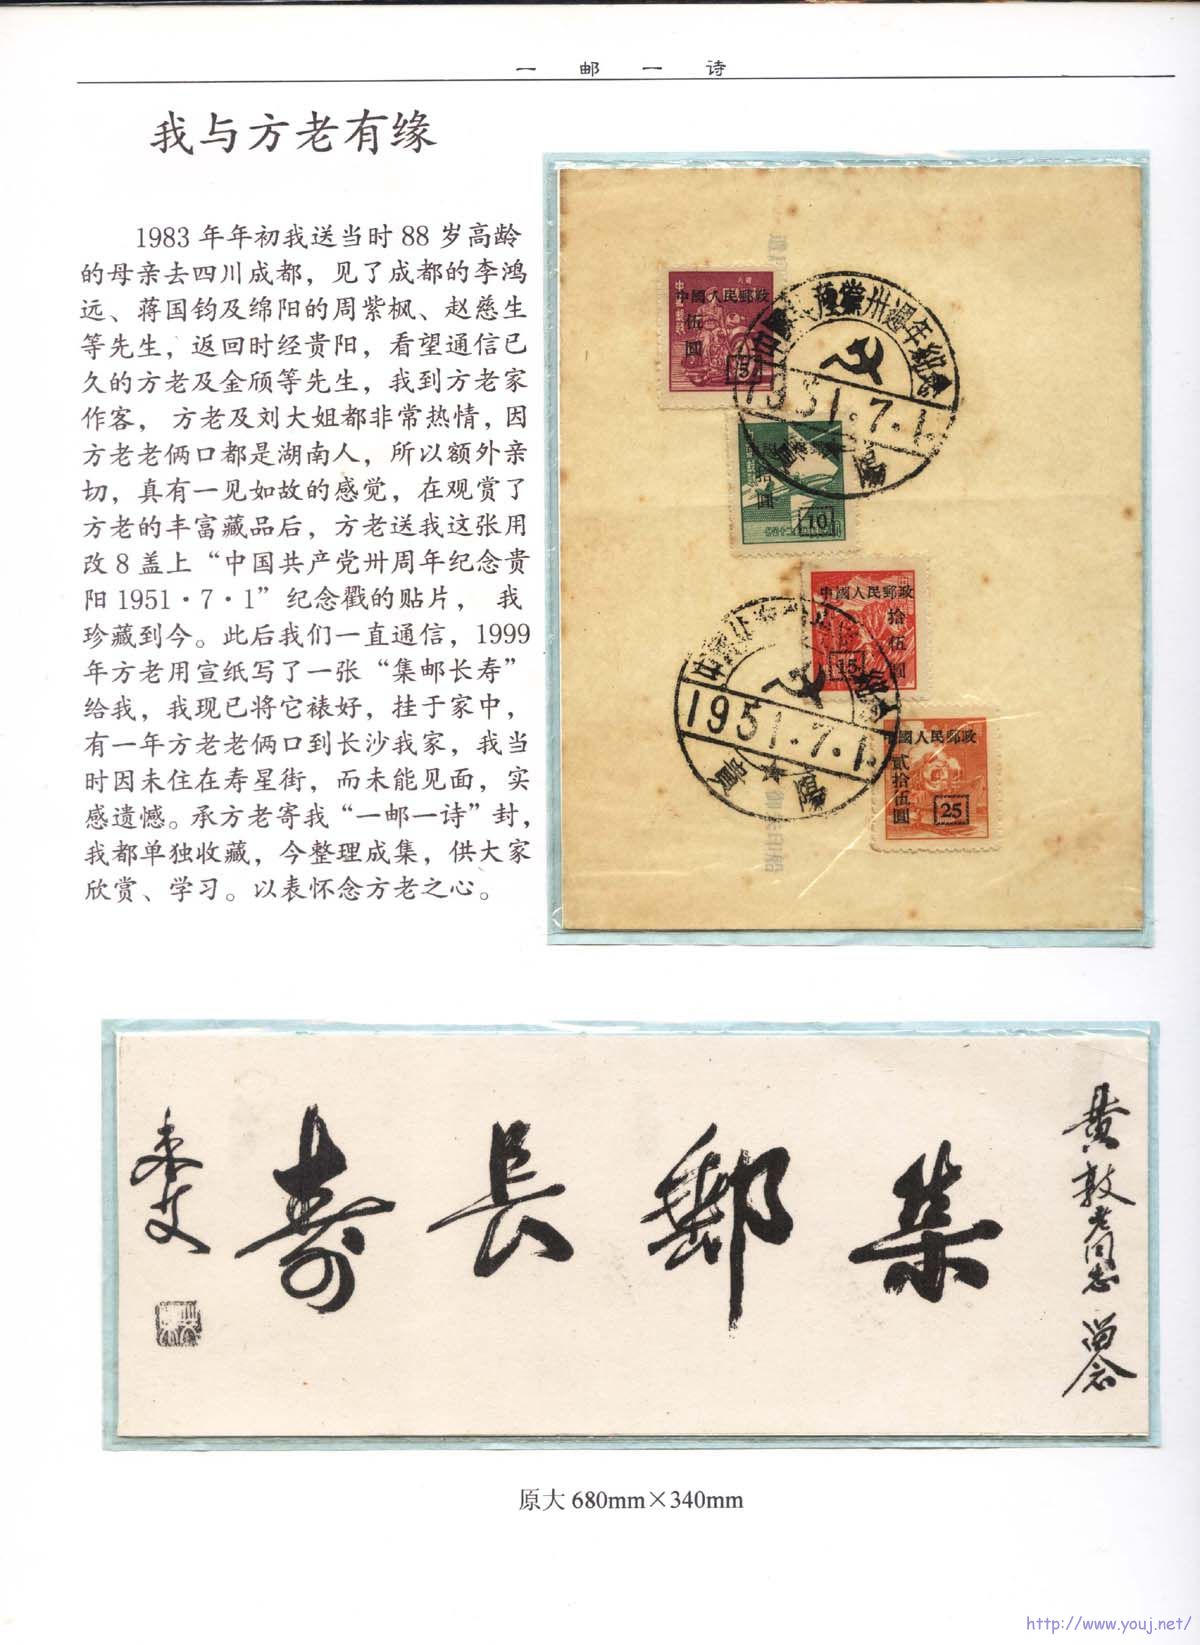 一邮一诗
我与方老有缘
1983 年年初我送当时 88 岁高龄
的母亲去四川成都，见了成都的李鸿
远、蒋国钧及绵阳的周紫枫、赵慈生
等先生，返回时经贵阳，看望通信已
久的方老及金颀等先生，我到方老家
作客， 方老及刘大姐都非常热情，因
方老老俩口都是湖南人，所以额外亲
切，真有一见如故的感觉，在观赏了
方老的丰富藏品后，方老送我这张用
改 8 盖上“中国共产党卅周年纪念贵
阳 1951·7·1”纪念戳的贴片， 我
珍藏到今。此后我们一直通信，1999
年方老用宣纸写了一张“集邮长寿”
给我，我现已将它裱好，挂于家中，
有一年方老老俩口到长沙我家，我当
时因未住在寿星街，而未能见面，实
感遗憾。承方老寄我“一邮一诗”封，
我都单独收藏，今整理成集，供大家
欣赏、学习。以表怀念方老之心。
中國人民郵政
伍圓
5
卅週年紀念
1951.7.1
拾圓
10
中國人民郵政
拾伍圓
15
1951.7.1
中國人民郵政
貳拾伍圓
25
黄敦老同志 留念
集郵長壽
原大 680mm×340mm
http://www.youj.net/